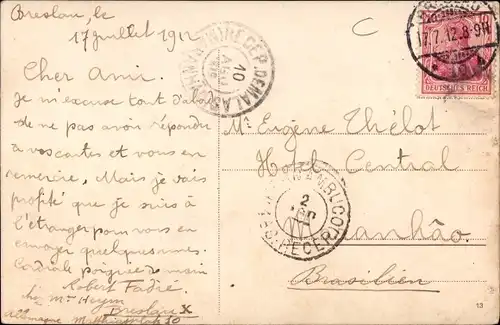 Breslau, le
17 juillet 1912
Cher Ami.
Je m'excuse tout d'abord
de ne pas avoir répondre
à vos cartes et vous en
remercire, Mais je vais
profité que je suis à
l'étranger pour vous en
envoyer quelques unes.
Cordiale poignée de main
Robert Fadié
chez Mme Heym
Breslau X
Allemagne 30
C
BRESLAU
17.7.12.8-9N
DEUTSCHES REICH
10
2
PERNAMBUCO
Mr Eugène Thélot
Hotel Central
Maranhão
Brasilien
13